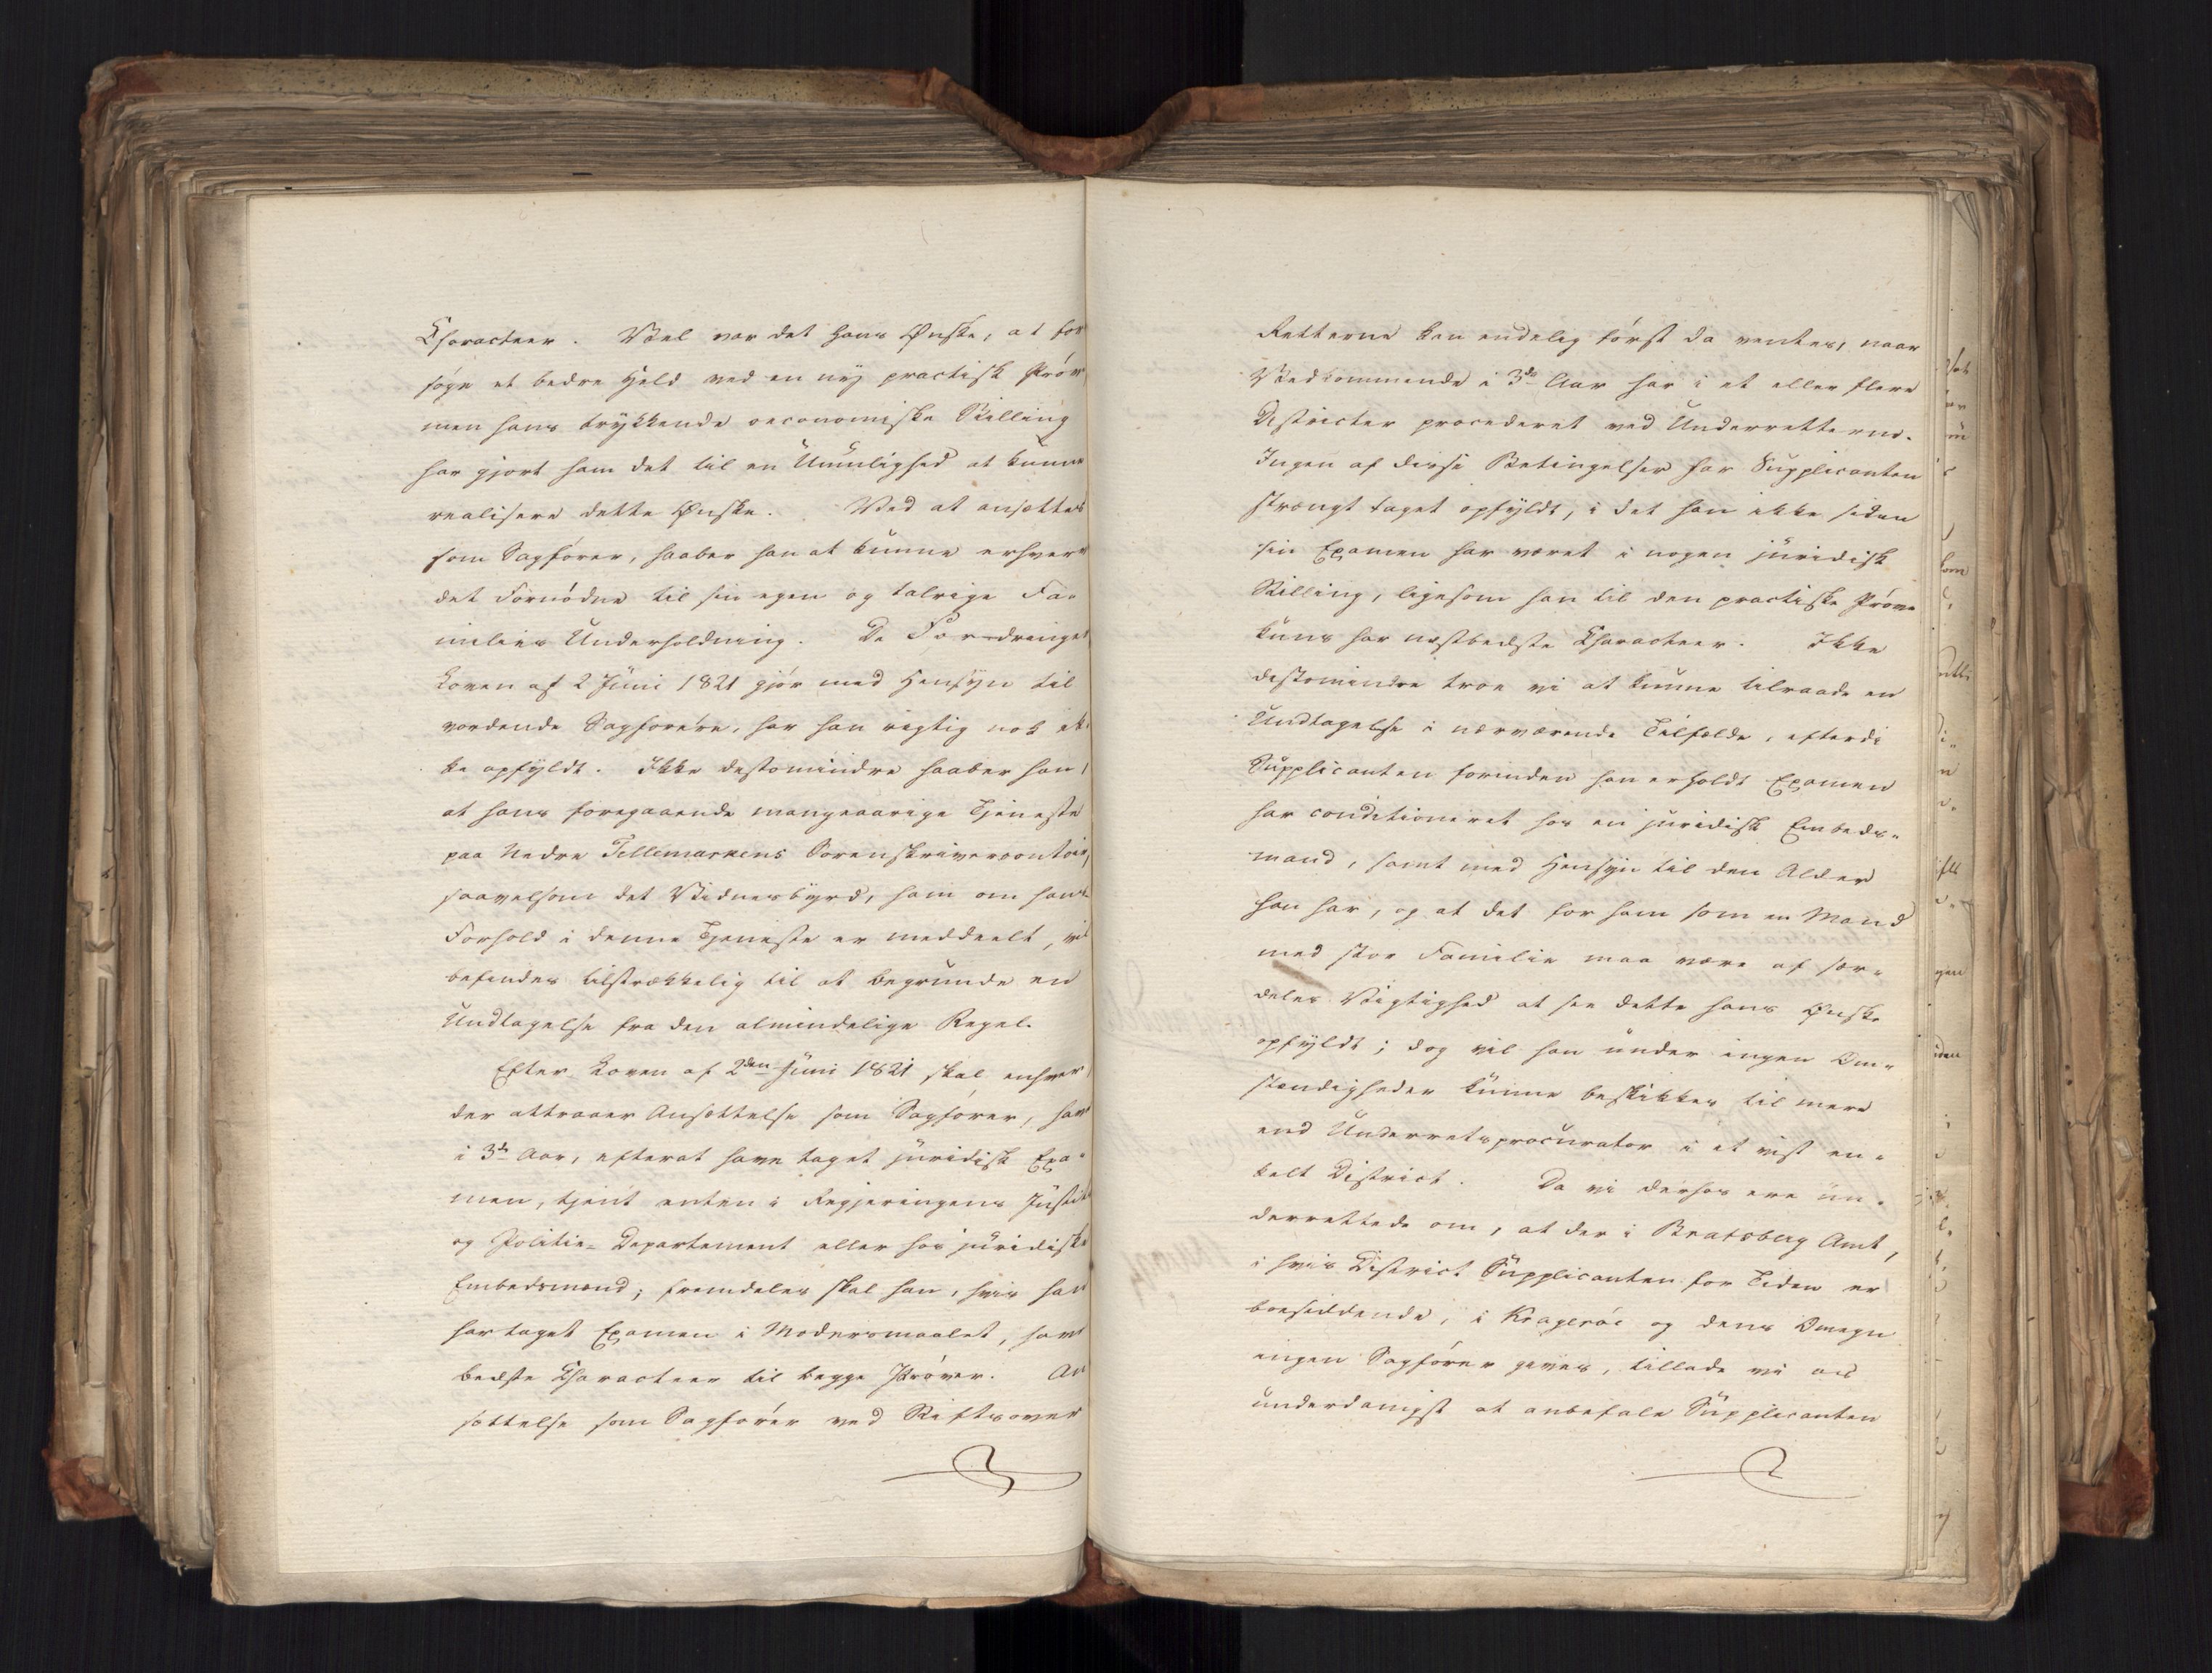 Characteer. Vel var det hans Ønske, at for
søge et bedre Held ved en nÿ practisk Prøv
men hans trÿkkende oeconomiske Stilling
har gjort ham det til en Umulighed at kunne
realisere dette Ønske. Ved at ansættes
som Sagfører, haaber han at kunne erhverv
det Fornødne til sin egen og talrige Fa-
milies Underholdning. De Fordringer
Loven af 2 Juni 1821 gjør med Hensÿn til
vordende Sagførere, har han rigtig nok ik-
ke opfÿldt. Ikke destomindre haaber han,
at hans foregaaende mangeaarige Tjeneste
paa Nedre Tellemarkens Sorenskrivercontoir,
saavelsom det Vidnesbÿrd, ham om hans
Forhold i denne Tjeneste er meddeelt, vil
befindes tilstrækkelig til at begrunde en
Undtagelse fra den almindelige Regel.
Efter Loven af 2den Juni 1821 skal enhver,
der attraaer Ansættelse som Sagfører, have
i 3de Aar, efterat have taget juridisk Exa-
men, tjent enten i Regjeringens Justits
og Politie-Departement eller hos juridiske
Embedsmænd; fremdeles skal han, hvis han
har taget Examen i Modersmaalet, have
bedste Characteer til begge Prøver. An
sættelse som Sagfører ved Stiftsover
Retterne kan endelig først da ventes, naar
Vedkommende i 3de Aar har i et eller flere
Districter procederet ved Underretterne.
Ingen af disse Betingelser har Supplicanten
strængt taget opfÿldt, i det han ikke siden
sin Examen har været i nogen juridisk
Stilling, ligesom han til den practiske Prøve
kuns har næstbedste Characteer. Ikke
destomindre troe vi at kunne tilraade en
Undtagelse i nærværende Tilfælde, efterdi
Supplicanten forinden han erholdt Examen
har conditioneret hos en juridisk Embeds-
mand, samt med Hensÿn til den Alder
han har, og at det for ham som en Mand
med stor Familie maa være af sær-
deles Vigtighed at see dette hans Ønske
opfÿldt; dog vil han under ingen Om-
stændigheder kunne beskikkes til mere
end Underretsprocurator i et vist en-
kelt District. Da vi derhos ere un-
derrettede om, at der i Bratsberg Amt,
i hvis District Supplicanten for Tiden er
boesiddende, i Kragerøe og dens Omegn
ingen Sagfører gives, tillade vi os
underdanigst at anbefale Supplicanten